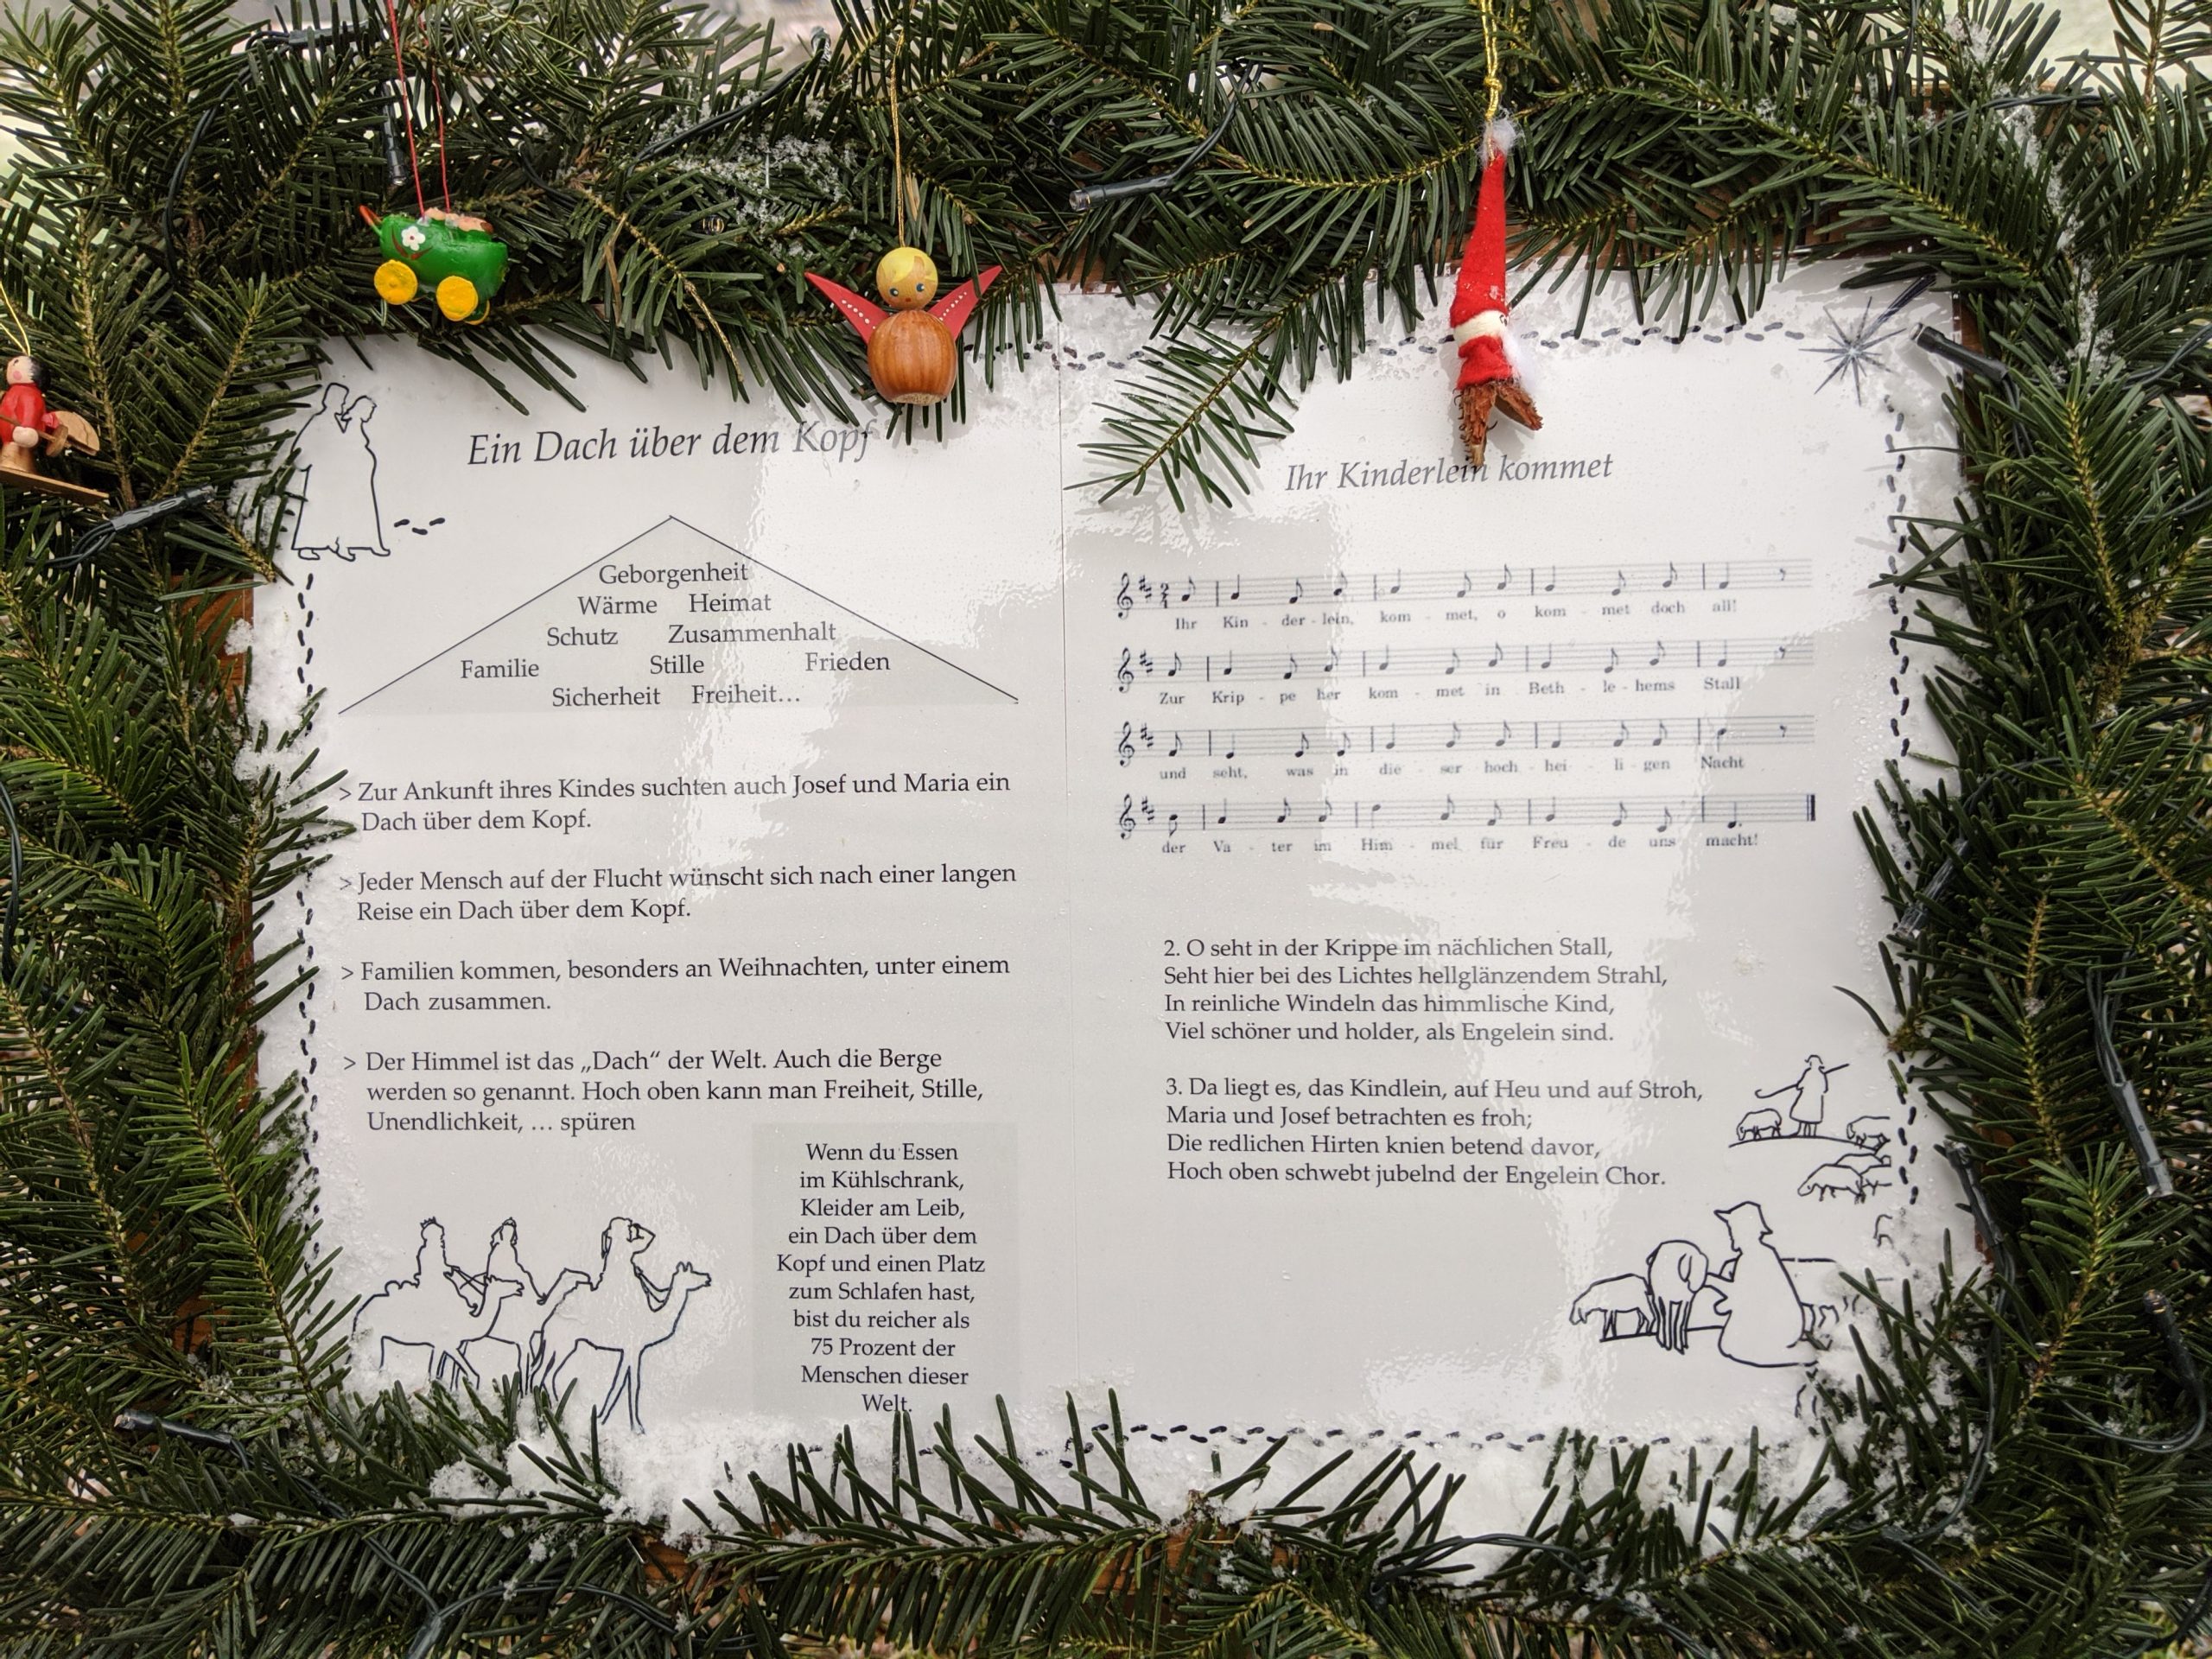 Ein Dach über dem Kopf
Geborgenheit
Wärme Heimat
Schutz Zusammenhalt
Familie Stille Frieden
Sicherheit Freiheit...
> Zur Ankunft ihres Kindes suchten auch Josef und Maria ein
Dach über dem Kopf.
> Jeder Mensch auf der Flucht wünscht sich nach einer langen
Reise ein Dach über dem Kopf.
> Familien kommen, besonders an Weihnachten, unter einem
Dach zusammen.
> Der Himmel ist das „Dach“ der Welt. Auch die Berge
werden so genannt. Hoch oben kann man Freiheit, Stille,
Unendlichkeit, … spüren
Wenn du Essen
im Kühlschrank,
Kleider am Leib,
ein Dach über dem
Kopf und einen Platz
zum Schlafen hast,
bist du reicher als
75 Prozent der
Menschen dieser
Welt.
Ihr Kinderlein kommet
Ihr Kin - der - lein, kom - met, o kom - met doch all!
Zur Krip - pe her kom - met in Beth - le - hems Stall
und seht, was in die - ser hoch - hei - li - gen Nacht
der Va - ter im Him - mel für Freu - de uns macht!
2. O seht in der Krippe im nächlichen Stall,
Seht hier bei des Lichtes hellglänzendem Strahl,
In reinliche Windeln das himmlische Kind,
Viel schöner und holder, als Engelein sind.
3. Da liegt es, das Kindlein, auf Heu und auf Stroh,
Maria und Josef betrachten es froh;
Die redlichen Hirten knien betend davor,
Hoch oben schwebt jubelnd der Engelein Chor.